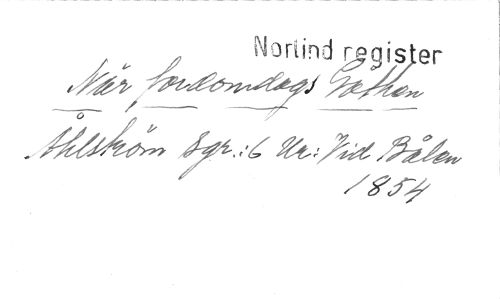 Norlind register
När forndomdags Göthen
Åhlström Sgr.:6 Ur: Vid Bålen
1854